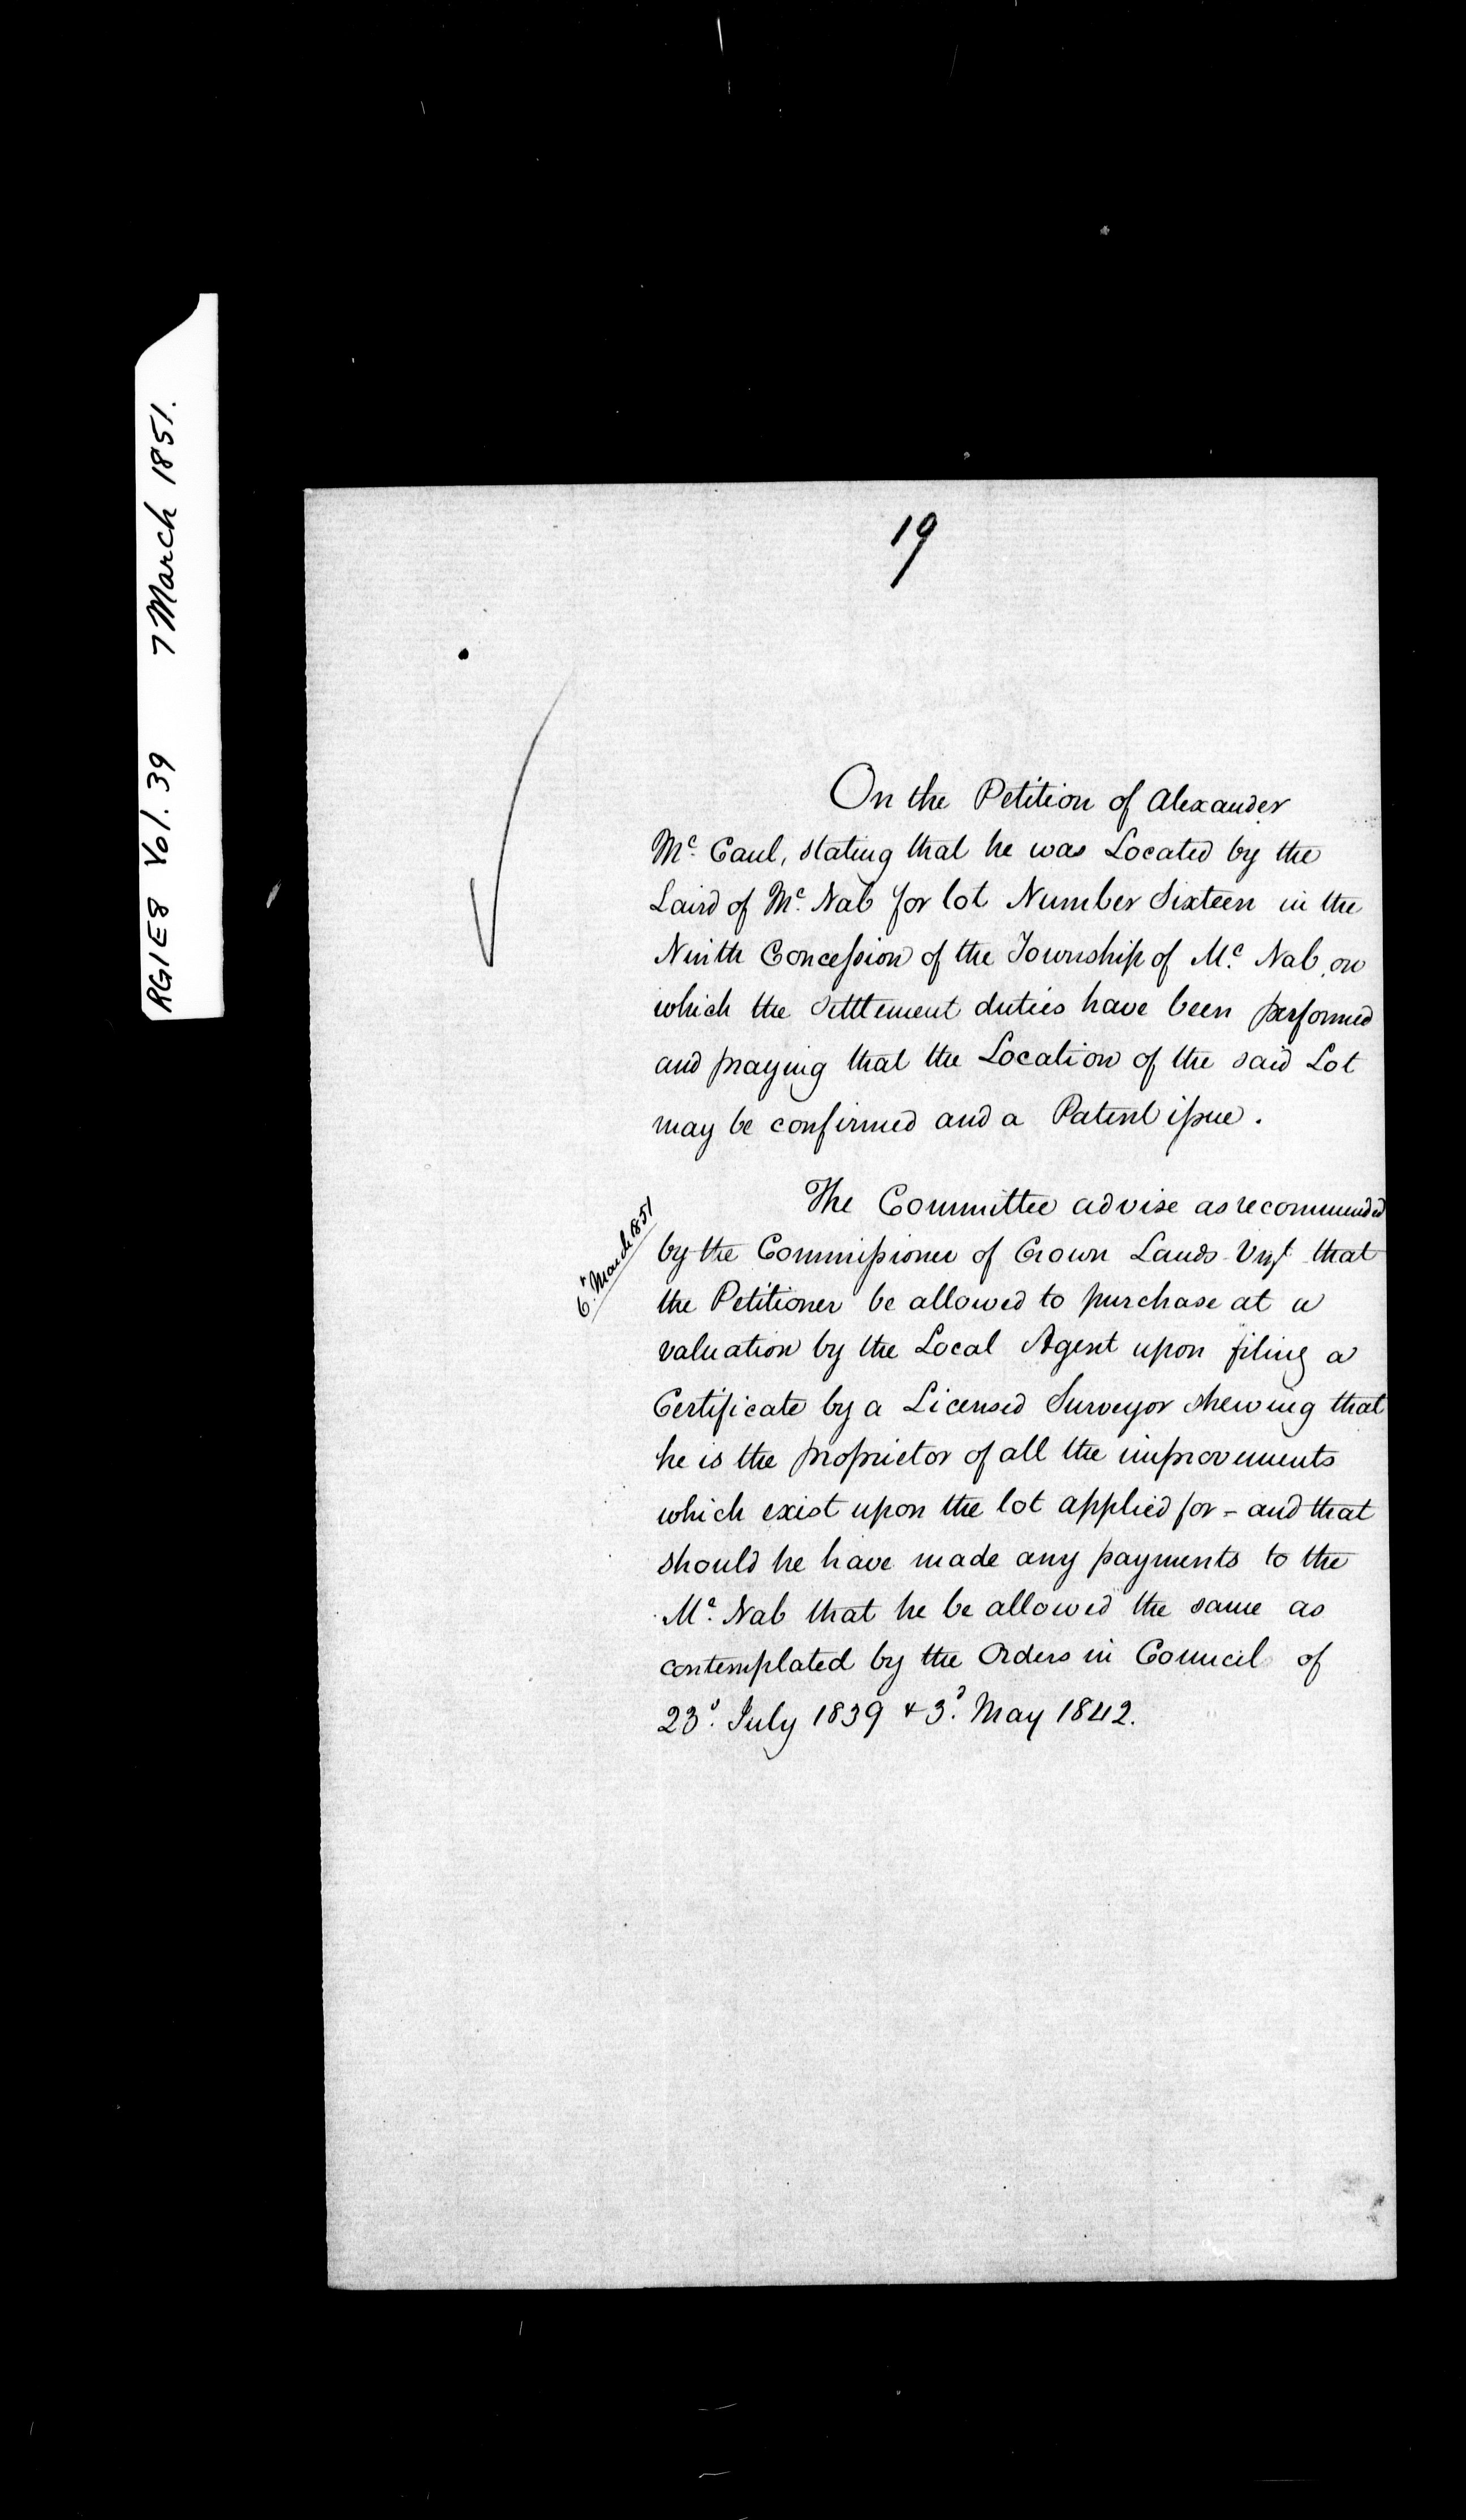 RG1E8 Vol. 39 7 March 1851.
19
On the Petition of Alexander
Mc. Caul, stating that he was Located by the
Laird of Mc. Nab for lot Number Sixteen in the
Ninth Concession of the Township of Mc. Nab, on
which the settlement duties have been performed
and praying that the Location of the said Lot
may be confirmed and a Patent issue.
6th March 1851
The Committee advise as recommended
by the Commissioner of Crown Lands Vizt that
the Petitioner be allowed to purchase at a
valuation by the Local Agent upon filing a
Certificate by a Licensed Surveyor shewing that
he is the proprietor of all the improvements
which exist upon the lot applied for - and that
should he have made any payments to the
Mc. Nab that he be allowed the same as
contemplated by the Orders in Council of
23d. July 1839 & 3d. May 1842.